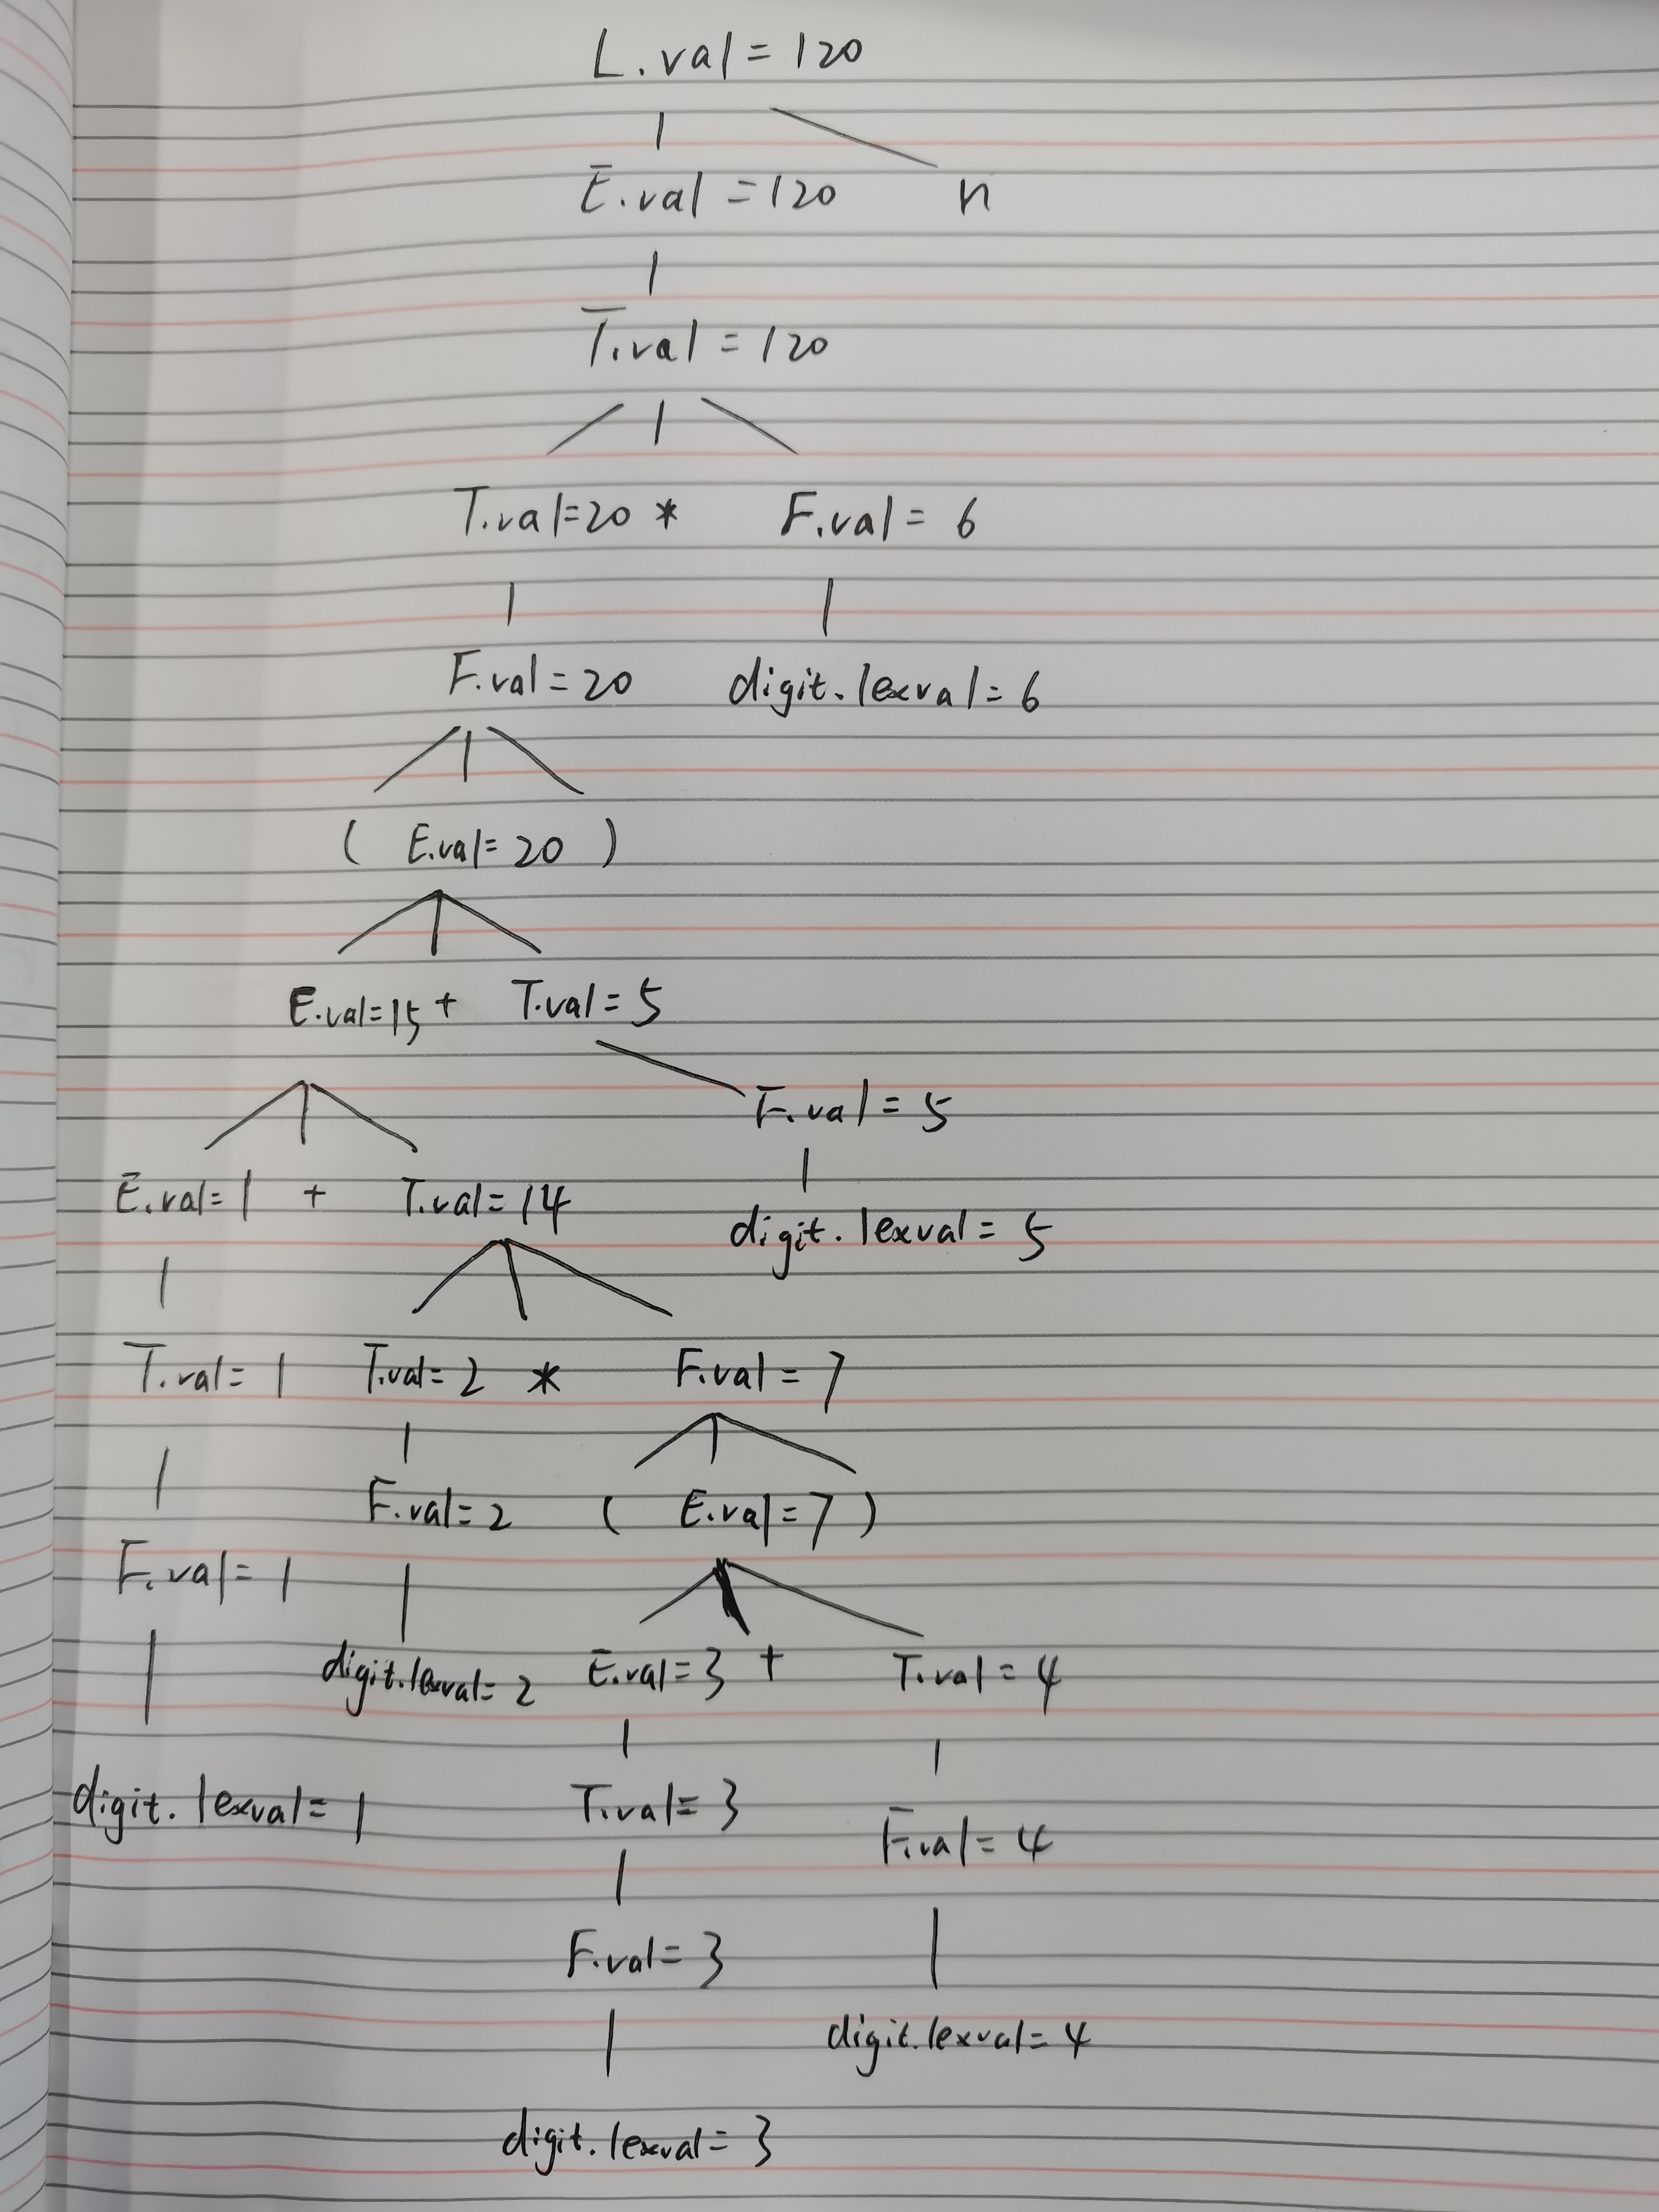 L.val=120
E.val=120 n
T.val=120
T.val=20 * F.val=6
F.val=20 digit.lexval=6
( E.val=20 )
E.val=15 + T.val=5
F.val=5
E.val=1 + T.val=14
digit.lexval=5
T.val=1 T.val=2 * F.val=7
F.val=2 ( E.val=7 )
F.val=1
digit.lexval=2 E.val=3 + T.val=4
digit.lexval=1 T.val=3
F.val=4
F.val=3
digit.lexval=4
digit.lexval=3